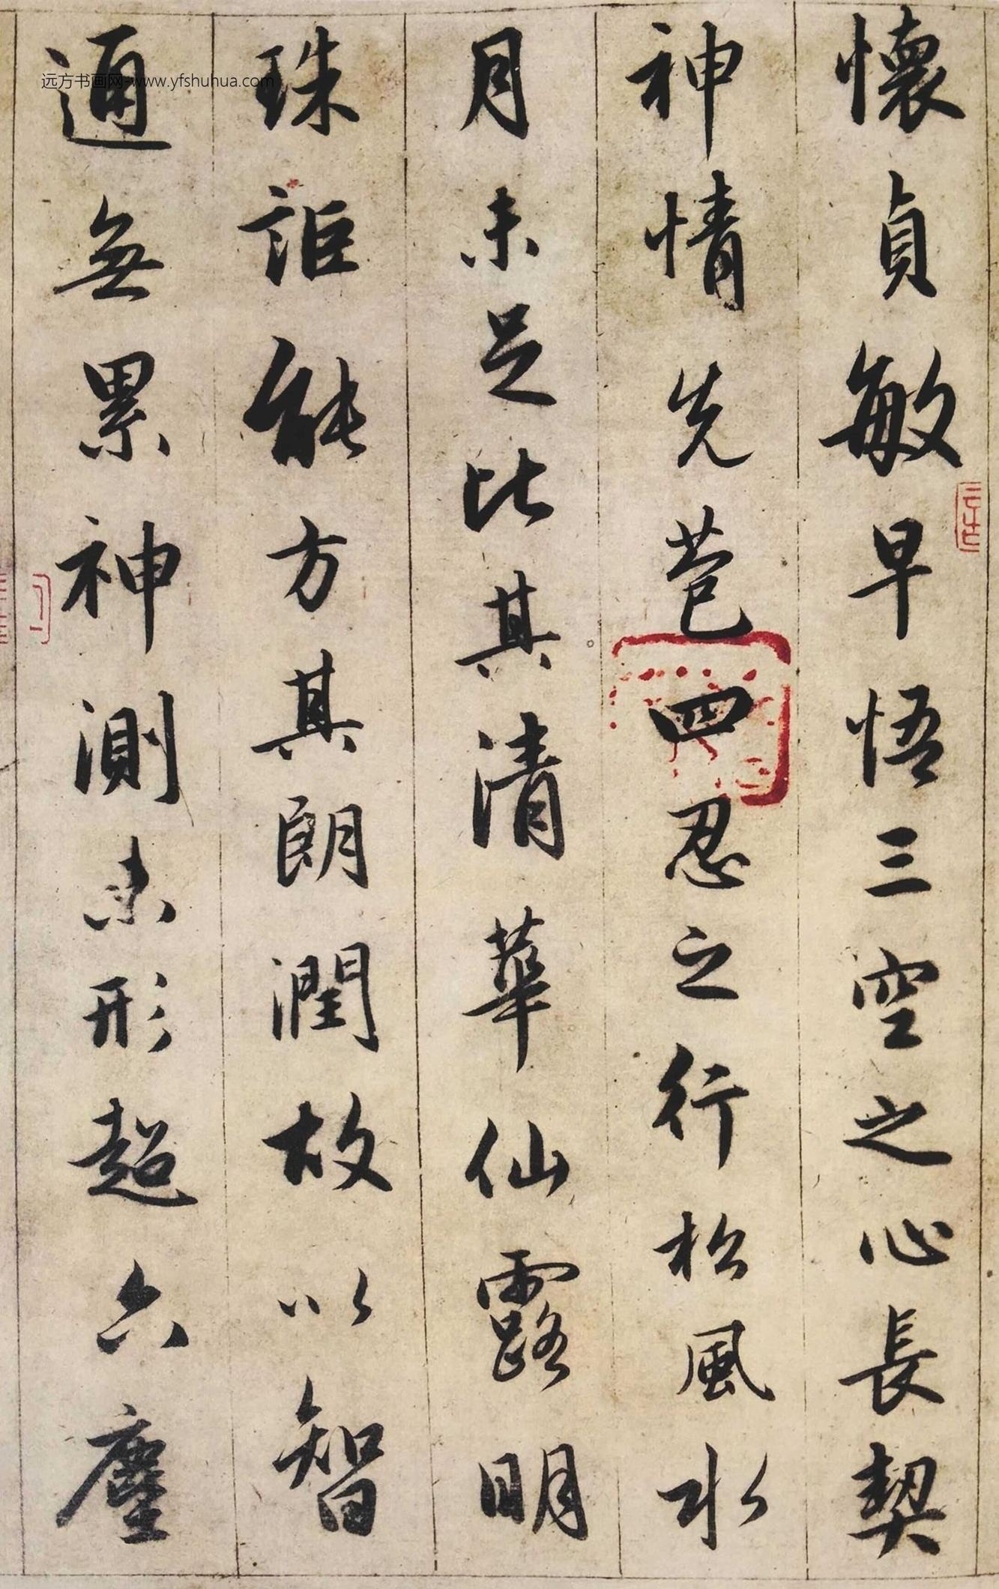 懷貞敏早悟三空之心長契
神情先苞四忍之行松風水
月未足比其清華仙露明
珠詎能方其朗潤故以智
通無累神測未形超六塵
远方书画网 www.yfshuhua.com